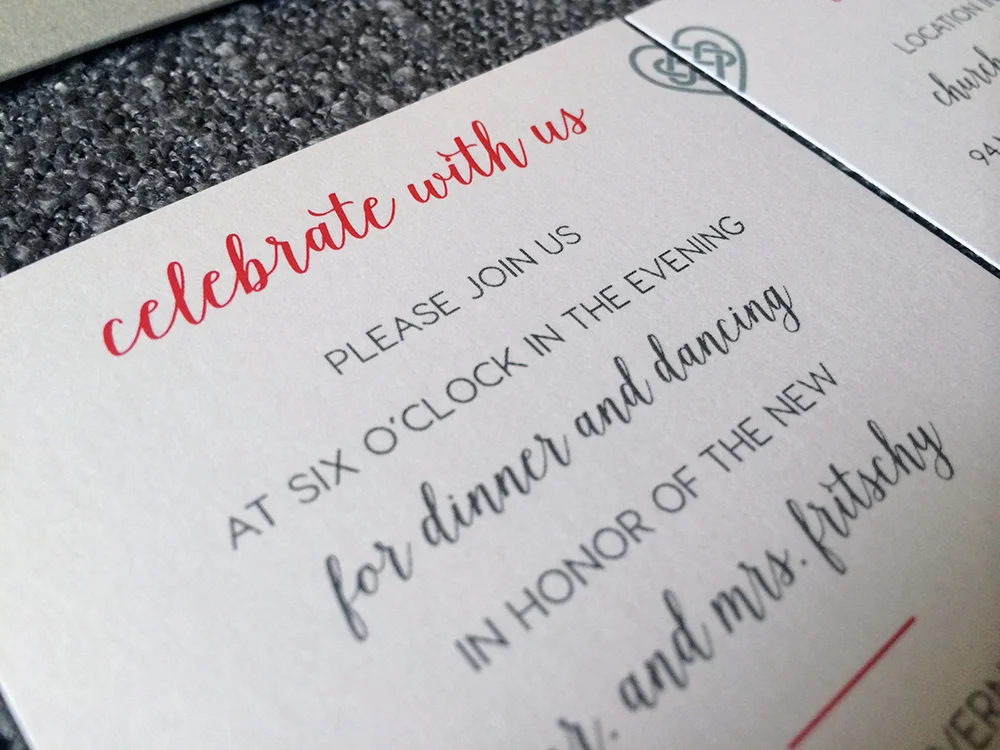 celebrate with us
PLEASE JOIN US
AT SIX O'CLOCK IN THE EVENING
for dinner and dancing
IN HONOR OF THE NEW
and mrs. fritschy
LOCATION
church
94